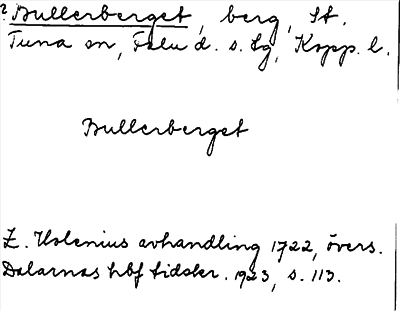 ? Bullerberget, berg, St.
Tuna sn, Falu d. s. Lg, Kopp. l.
Bullerberget
E. Holenius avhandling 1722, övers.
Dalarnas hbf tidskr. 1923, s. 113.